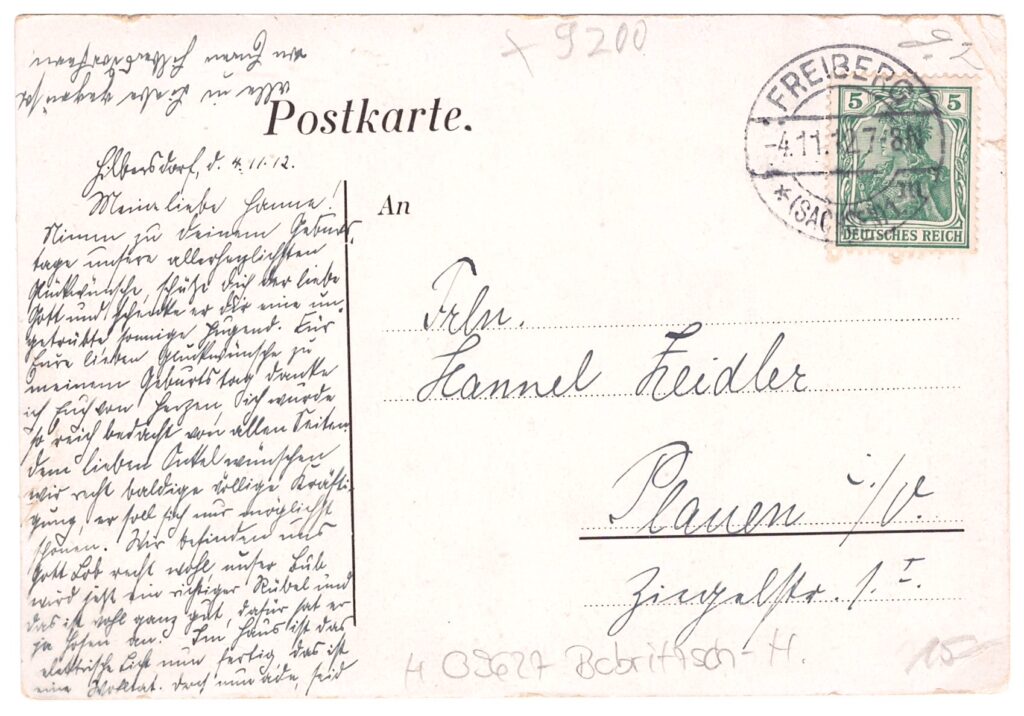 + 9200
Postkarte.
Hilbersdorf, d. 4.11.12.
Meine liebe Hanne!
Nimm zu deinem Geburts-
tage unsere allerherzlichsten
Glückwünsche, schütze Dich der liebe
Gott und schenke er dir eine un-
getrübte sonnige Jugend. Für
Eure lieben Glückwünsche zu
meinem Geburtstag danke
ich Euch von Herzen, ich wurde
so reich bedacht von allen Seiten,
dem lieben Onkel wünschen
wir recht baldige völlige Kräfti-
gung, er soll sich nur möglichst
schonen. Wir befinden uns
Gott Lob recht wohl, unser Bub
wird jetzt ein richtiger Rübel und
das ist wohl ganz gut, dafür hat er
ja Hosen an. Im Haus ist das
elektrische Licht nun fertig, das ist
eine Wohltat. Doch nun ade, seid
An
Frln.
Hannel Zeidler
Plauen i/V.
Ziegelstr. 1. I.
FREIBERG
-4.11.12.7-8N
*(SACHSEN)1.
5 5
DEUTSCHES REICH
H 09627 Bobritzsch-H.
15-